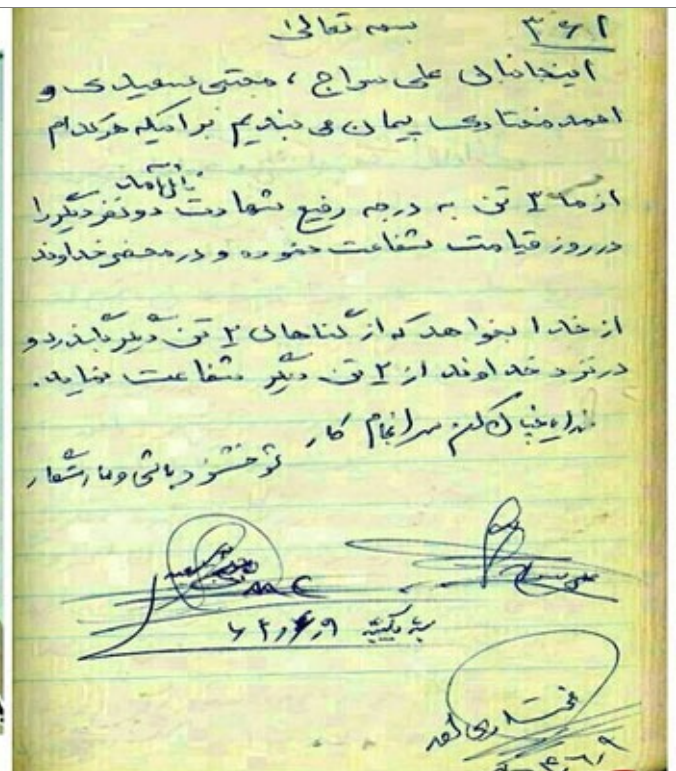 بسمه تعالی
اینجانبان علی سراج ، مجتبی سعیدی و
احمد مختاری پیمان می بندیم براینکه هرکدام
نائل آمد
از ما ۳ تن به درجه رفیع شهادت دو نفر دیگر را
در روز قیامت شفاعت نموده و در محضر خداوند
از خدا بخواهد که از گناهان ۲ تن دیگر بگذرد و
در نزد خداوند از ۲ تن دیگر شفاعت نماید.
خدایا چنان کن سرانجام کار
تو خشنود باشی و ما رستگار
علی سراج
مختاری احمد